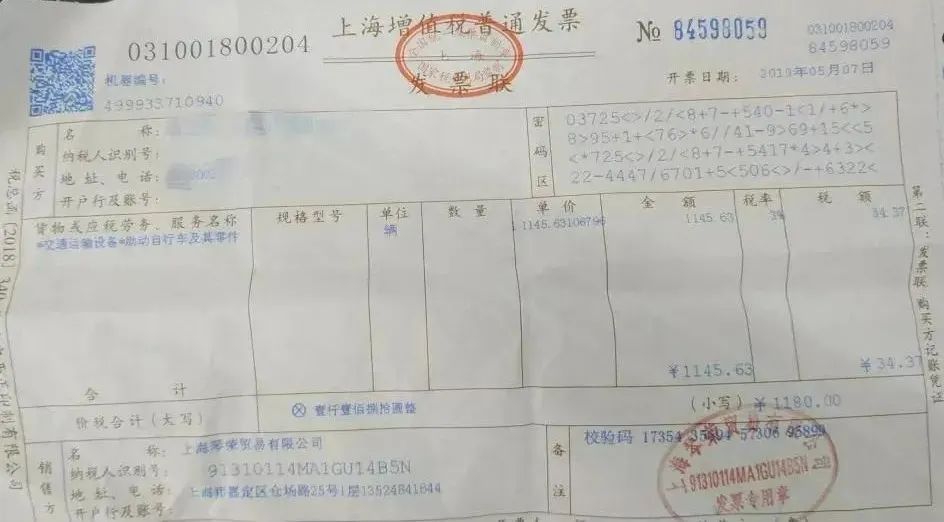 031001800204
上海增值税普通发票
发票联
№ 84598059
031001800204
84598059
机器编号:
499933710940
开票日期: 2019年05月07日
购买方
名 称:
纳税人识别号:
地址、电话:
开户行及账号:
密码区
03725<>/2/<8+7-+540-1<1/+6*>
8>95+1+<76>*6//41-9>69+15<<5
<*725<>/2/<8+7-+5417*4>4+3><
22-4447/6701+5<506<>/-+6322<
货物或应税劳务、服务名称 规格型号 单位 数量 单价 金额 税率 税额
*交通运输设备*助动自行车及其零件 辆 1145.63106796 1145.63 3% 34.37
合 计 ¥1145.63 ¥34.37
价税合计(大写) ⊗ 壹仟壹佰捌拾圆整 (小写) ¥1180.00
销售方
名 称: 上海琴荣贸易有限公司
纳税人识别号: 91310114MA1GU14B5N
地址、电话: 上海市嘉定区仓场路25号1层13524841644
开户行及账号:
备注
校验码 17354 35694 57306 95899
91310114MA1GU14B5N
发票专用章
第二联:发票联 购买方记账凭证
税总函[2018]